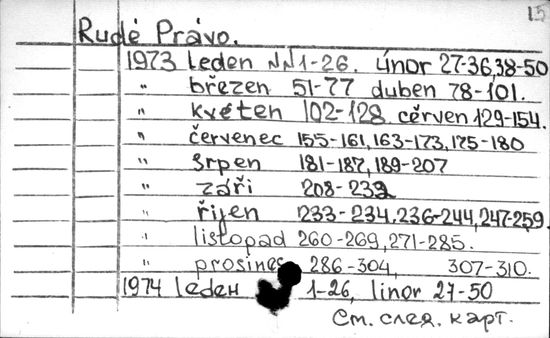 15
Rudé Právo.
1973 leden NN1-26. únor 27-36,38-50
" březen 51-77 duben 78-101.
" květen 102-128 cerven 129-154.
" červenec 155-161, 163-173, 175-180
" srpen 181-187, 189-207
" září 208-232
" říjen 233-234, 236-244, 247-259.
" listopad 260-269, 271-285.
" prosinec 286-304, 307-310.
1974 leden 1-26, únor 27-50
См. след. карт.